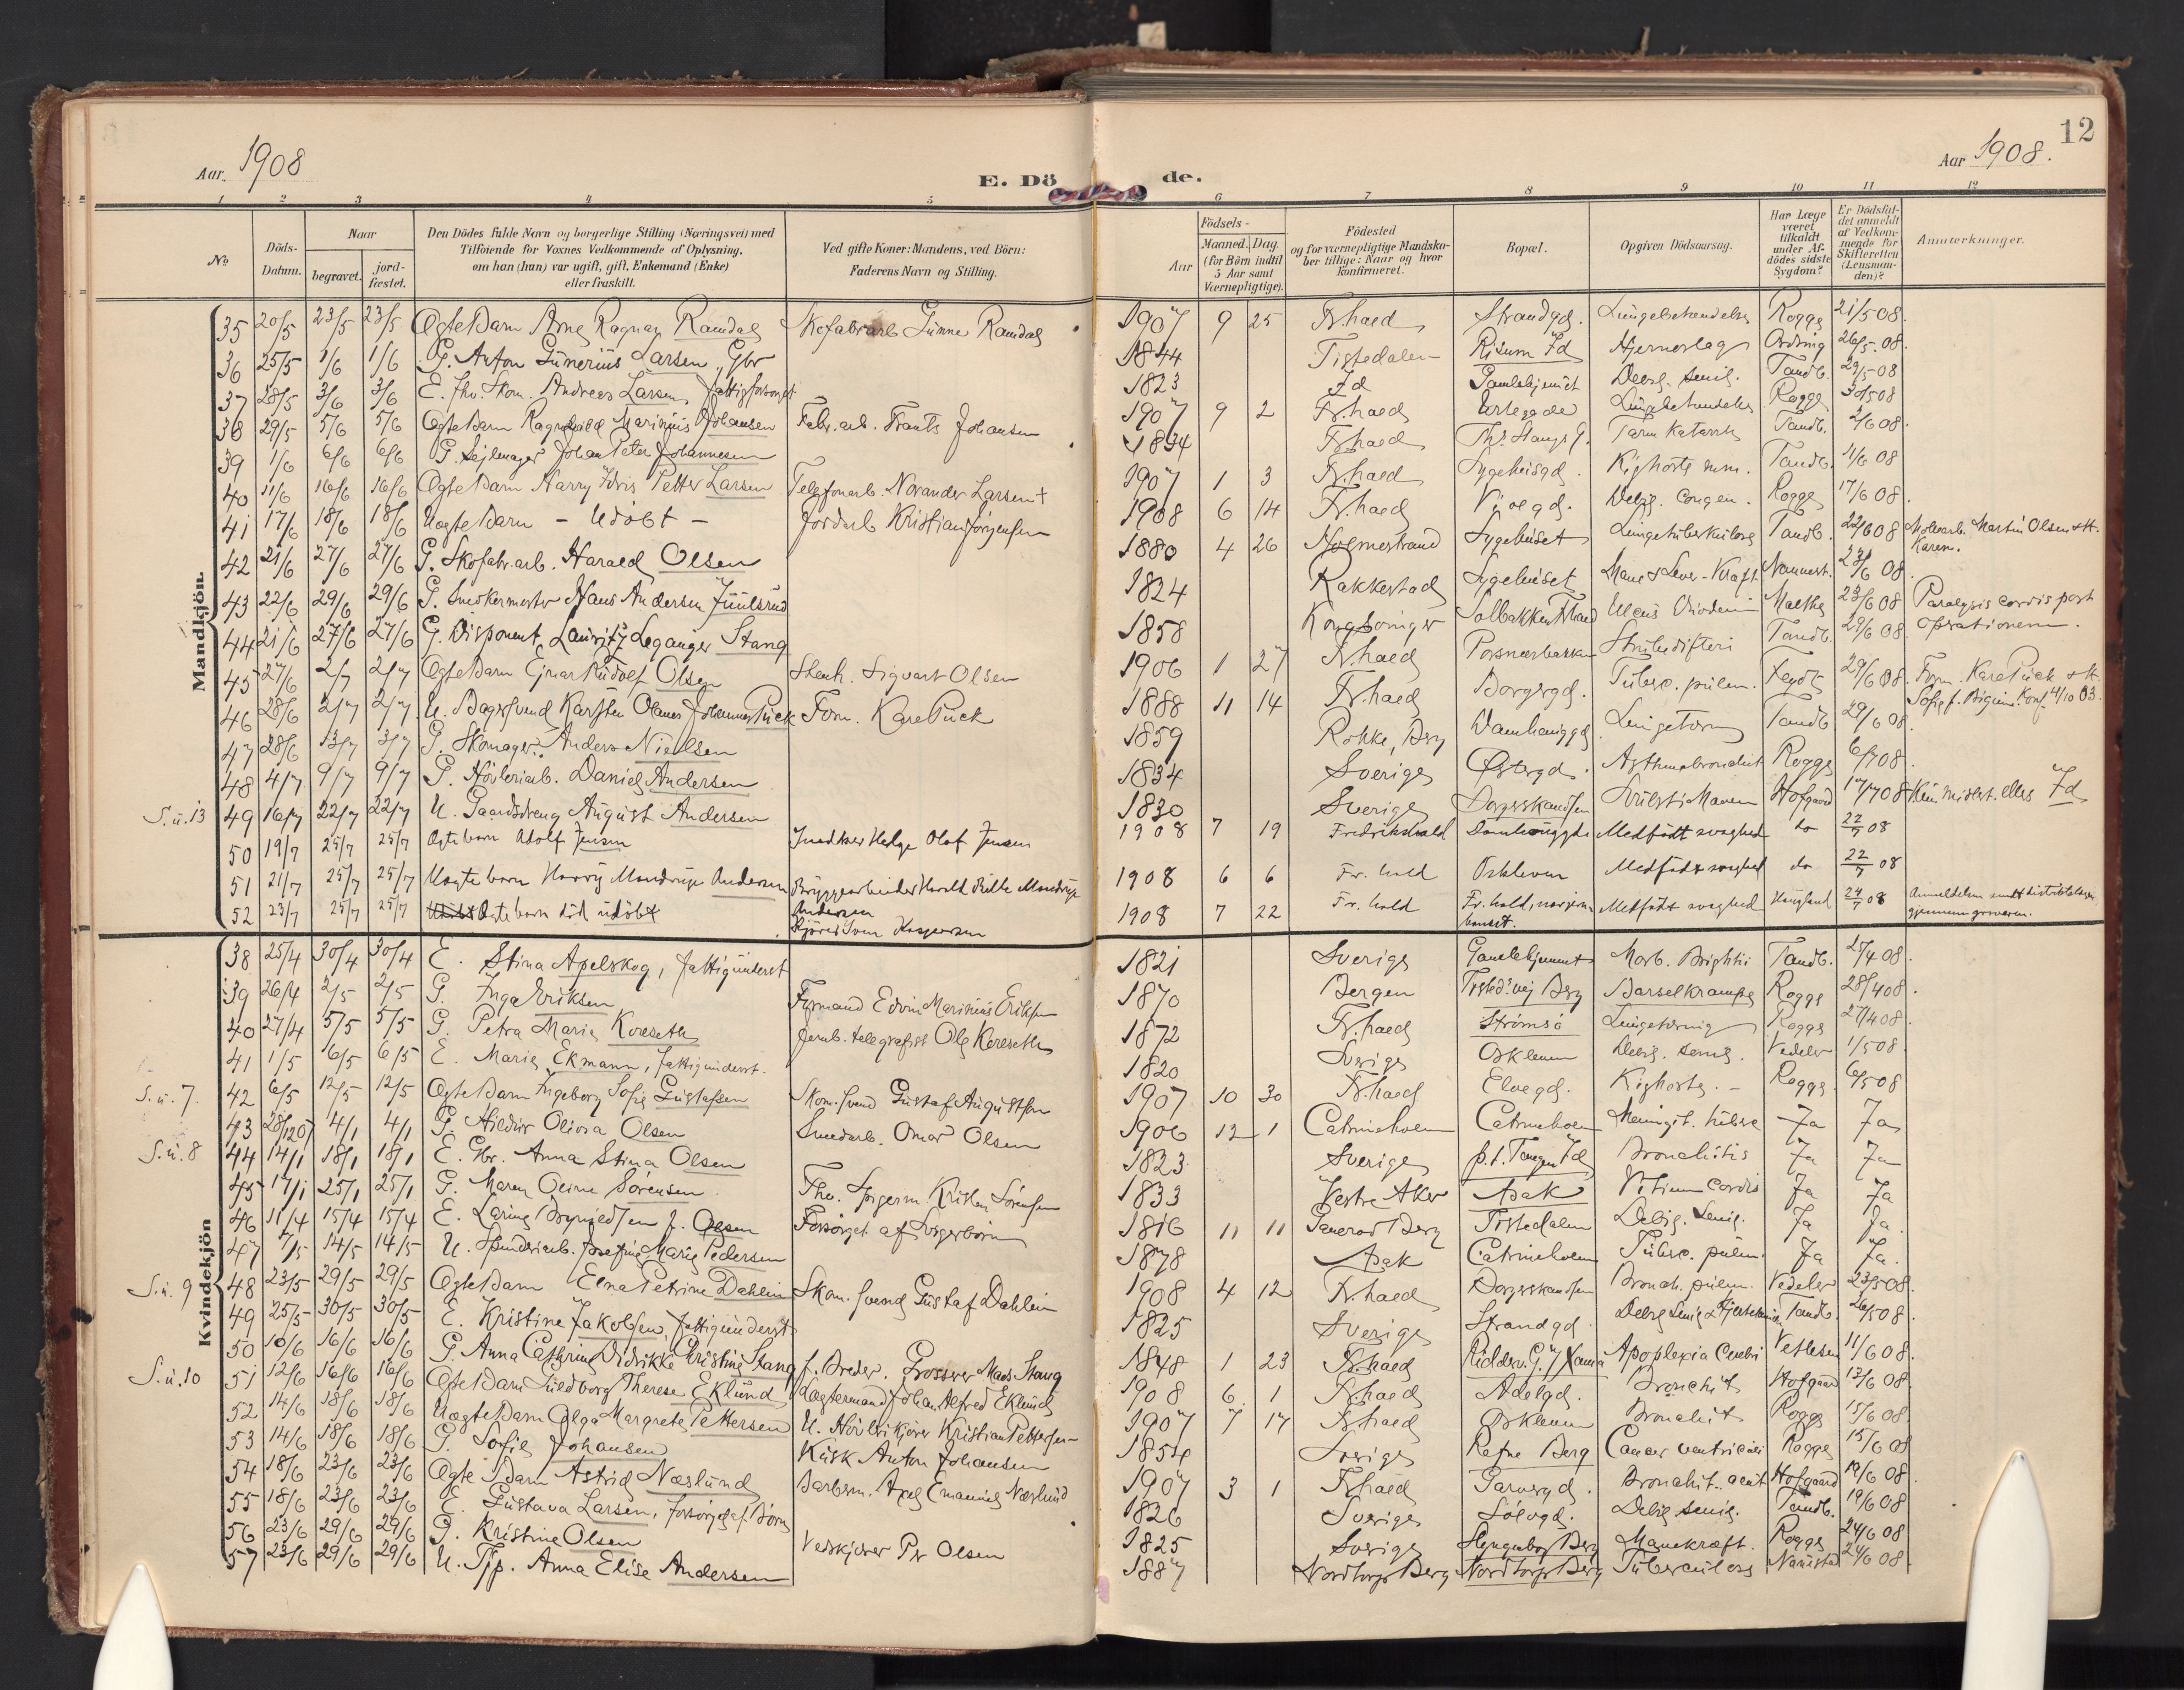 12
Aar 1908
Aar 1908.
E. Dö de.
1 2 3 4 5 6 7 8 9 10 11 12
No
Döds-Datum.
Naar
begravet.
jord-fæstet.
Den Dödes fulde Navn og borgerlige Stilling (Næringsvei) med
Tilföiende for Voxnes Vedkommende af Oplysning.
om han (hun) var ugift, gift, Enkemand (Enke)
eller fraskilt.
Ved gifte Koner: Mandens, ved Börn:
Faderens Navn og Stilling.
Födsels-
Aar
Maaned. Dag.
(for Börn indtil
5 Aar samt
Værnepligtige).
Födested
og for værnepligtige Mandska-
ber tillige: Naar og hvor
konfirmeret.
Bopæl.
Opgiven Dödsaarsag.
Har Læge
været
tilkaldt
under Af-
dödes sidste
Sygdom?
Er Dödsfal-
det anmeldt
af Vedkom-
mende for
Skifteretten
(Lensman-
den)?
Anmærkninger.
Mandkjön.
35 20/5 23/5 23/5 Ægte Barn Arne Ragnar Ramdal Skofabrarb Gunne Ramdal 1907 9 25 Fr.hald Strandgd. Rogge 21/5 08.
36 25/5 1/6 1/6 G. Anton Gunerius Larsen, Gbr 1844 Tistedalen Risum Id Hjerneslag Ording 26/5. 08.
37 28/5 3/6 3/6 E. fhv. Skom. Andreas Larsen, fattigforsørget 1823 Id Gamlehjemmet Debil. senil. Tandb. 29/5 08
38 29/5 5/6 5/6 Ægte Barn Ragnvald Marinius Johansen Fabr.arb. Frants Johansen 1907 9 2 Fr.hald Urtegade Rogge 30/5 08
39 1/6 6/6 6/6 G. Sejlmager Johan Peter Johannesen 1834 Fr.hald Ths. Stangs G. Tarm Katarrh Tandb. 2/6 08.
40 11/6 16/6 16/6 Ægte Barn Harry Idris Petter Larsen Telefonarb. Norander Larsen 1907 1 3 Fr.hald Sygehusgd. Kighoste m.m. Tandb. 11/6 08
41 17/6 18/6 18/6 Uægte Barn – Udöbt – Jordarb Kristian Jörgensen 1908 6 14 Fr.hald Violgd. Debil. congen. Rogge 17/6 08.
42 21/6 27/6 27/6 G. Skofabr.arb. Harald Olsen 1880 4 26 Holmestrand Sygehuset Lungetuberkulose Tandb. 22/6 08 Martin Olsen & H.
Karen.
43 22/6 29/6 29/6 G. Snedkermester Hans Andersen Juulsrud 1824 Rakkestad Sygehuset Mave & Lever-Kræft Nannest. 23/6 08.
44 21/6 27/6 27/6 G. Disponent Lauritz Leganger Stang 1858 Kongsvinger Solbakken Fr.hald Ulcus Malthe 23/6 08 Paralysis cordis post
operationem.
45 27/6 2/7 2/7 Ægte Barn Ejnar Rudolf Olsen Stenh. Sigvart Olsen 1906 1 27 Fr.hald Strubedifteri Tandb. 29/6 08.
46 28/6 2/7 2/7 U. Bagersvend Karsten Olanus Johannes Puck Form. Kare Puck 1888 11 14 Fr.hald Borgergd. Tuberc. pulm. Feydt 29/6 08. Form. Kare Puck & H.
Sofie f. Konf 4/10 03.
47 28/6 3/7 3/7 G. Skomager Anders Nielsen 1859 Rokke, Berg Damhauggd. Lungetæring Tandb. 29/6 08.
48 4/7 9/7 9/7 G. Hövleriarb. Daniel Andersen 1834 Sverige Østergd. Asthmabronchit Rogge 6/7 08.
S.u. 13 49 16/7 22/7 22/7 U. Gaardsdreng August Andersen 1830 Sverige Borgerskansen Svulst i Maven Hofgaard 17/7 08 Id
50 19/7 25/7 25/7 Ægte barn Adolf Jensen Snedker Helge Olaf Jensen 1908 7 19 Fredrikshald Damhauggd. Medfødt svaghed do 22/7 08
51 21/7 25/7 25/7 Uægte barn Harry Mandrup Andersen Bryggearbeider Harald Rille Mandrup
Andersen 1908 6 6 Fr. hald Oskleven Medfødt svaghed do 22/7 08
52 23/7 25/7 25/7 Ægte barn död udöbt Kjörer Sven Kasjersen 1908 7 22 Fr. hald Fr. hald, Medfødt svaghed Haugland 24/7 08 Anmeldelsen
gjennem graveren.
Kvindekjön
38 25/4 30/4 30/4 E. Stina Apelskog, fattigunderst 1821 Sverige Gamlehjemmet Morb. Brightii Tandb. 25/4 08.
39 26/4 2/5 2/5 G. Inga Eriksen Formand Edvin Marinius Eriksen 1870 Bergen Tisted. vej Berg Barselkrampe Rogge 28/4 08.
40 27/4 5/5 5/5 G. Petra Marie Korseth Jernb. telegrafist Ole Korseth 1872 Fr.hald Strömsö Lungetæring Rogge 27/4 08.
41 1/5 6/5 6/5 E. Marie Ekmann, fattigunderst. 1820 Sverige Oskleven Debil. senil. Vedeler 1/5 08.
S.u. 7. 42 6/5 12/5 12/5 Ægte Barn Ingeborg Sofie Gustafsen Skom. svend Gustaf Augustsen 1907 10 30 Fr.hald Elvegd. Kighoste. – Rogge 6/5 08
43 28/12 07 4/1 4/1 G. Hildur Olivia Olsen Smedarb. Omar Olsen 1906 12 1 Catrineholm Catrineholm Meningit. tuberc Ja Ja
S.u. 8 44 14/1 18/1 18/1 E. Gbr. Anna Stina Olsen 1823 Sverige p.t. Tangen Id Bronchitis Ja Ja
45 17/1 25/1 25/1 G. Maren Oline Sörensen Fhv. Kristen Sörensen 1833 Vestre Aker Asak Vitium cordis Ja Ja
46 11/4 15/4 15/4 E. Larine Brynildsen f. Olsen Forsörget af Svigerbörn 1816 11 11 Berg Tistedalen Debil. senil. Ja Ja.
47 7/5 14/5 14/5 U. Spinderiarb. Josefine Marie Pedersen 1878 Asak Catrineholm Tuberc. pulm. Ja Ja.
S.u. 9 48 23/5 29/5 29/5 Ægte Barn Elna Petrine Dahlein Skom. svend Gustaf Dahlein 1908 4 12 Fr.hald Borgerskansen Bronch. pulm. Vedeler 23/5 08.
49 25/5 30/5 30/5 E. Kristine Jakobsen, fattigunderst 1825 Sverige Strandgd. Debil senil & Tandb. 26/5 08
50 10/6 16/6 16/6 G. Anna Cathrine Didrikke Christine Stang f. Breder. Grosserer Mads Stang 1848 1 23 Fr.hald Apoplexia Cerebri Vetlesen 11/6 08.
S.u. 10 51 12/6 16/6 16/6 Ægte Barn Suldborg Therese Eklund Lagtermand Johan Alfred Eklund 1908 6 1 Fr.hald Adelgd. Bronchit Hofgaard 13/6 08.
52 14/6 18/6 18/6 Uægte Barn Olga Margrete Pettersen U. Hövlerikjörer Kristian Pettersen 1907 7 17 Fr.hald Oskleven Bronchit Rogge 15/6 08.
53 14/6 18/6 18/6 G. Sofie Johansen Kusk Anton Johansen 1854 Sverige Refne Berg Cancer ventriculi Rogge 15/6 08
54 18/6 23/6 23/6 Ægte Barn Astrid Næslund Barberm. Axel Emanuel Næslund 1907 3 1 Fr.hald Garvergd. Bronchit. acut Hofgaard 19/6 08.
55 18/6 23/6 23/6 E. Gustava Larsen, forsörget af Börn 1826 Sverige Sölvgd. Debil senil. Tandb. 19/6 08
56 23/6 29/6 29/6 G. Kristine Olsen Vedskjærer Pr Olsen 1825 Sverige Berg Mavekræft. Rogge 24/6 08
57 23/6 29/6 29/6 U. Tjp. Anna Elise Andersen 1887 Nordtorp Berg Nordtorp Berg Tuberculose 24/6 08